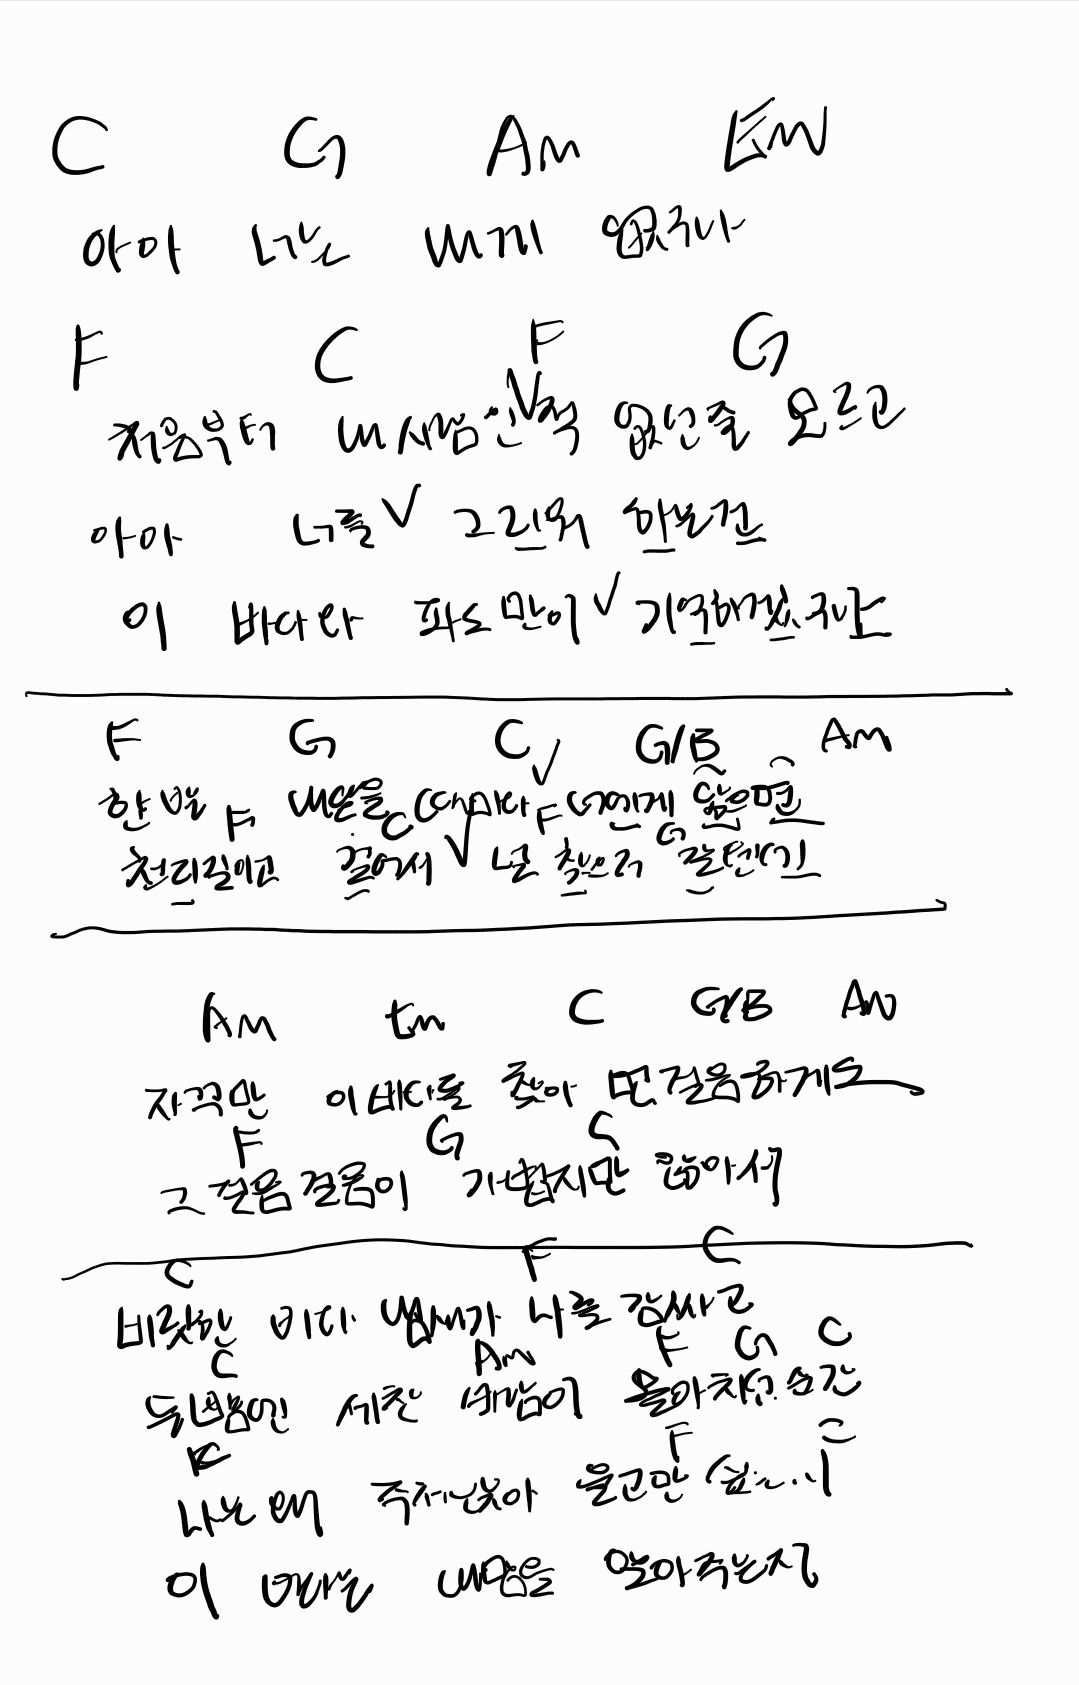 C G Am Em
아아 너는 내게 없구나
F C F G
처음부터 내사람인∨적 없던줄 모르고
아아 너를∨ 그리워 하는건
이 바다와 파도만이∨ 기억하겠구나
F G C∨ G/B Am
한 발 내딛을 때마다 너에게 닿으면
F C F G
천리길이고 걸어서∨ 널 찾으러 갈텐데
Am Em C G/B Am
자꾸만 이바다를 찾아 먼걸음하게도
F G C
그 걸음걸음이 가볍지만 않아서
C F C
비릿한 바다 냄새가 나를 감싸고
C Am F G C
두뺨에 세찬 바람이 몰아치던 순간
F C
나는 왜 주저앉아 울고만 싶은지
이 바다는 내맘을 알아주는지